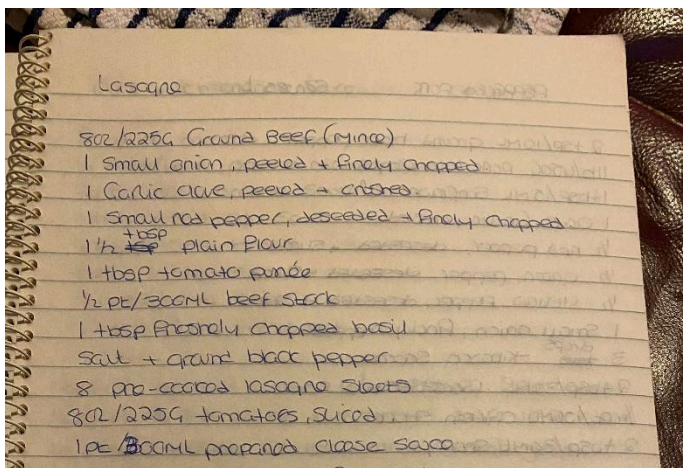 Lasagne
8oz/225G Ground Beef (Mince)
1 Small onion, peeled + finely chopped
1 Garlic clove, peeled + crushed
1 small red pepper, deseeded + finely chopped
1 1/2 tbsp plain flour
1 tbsp tomato purée
1/2 pt/300ML beef stock
1 tbsp freshely chopped basil
salt + ground black pepper
8 pre-cooked lasagne sheets
8oz/225G tomatoes, sliced
1pt/300ML prepared cheese sauce